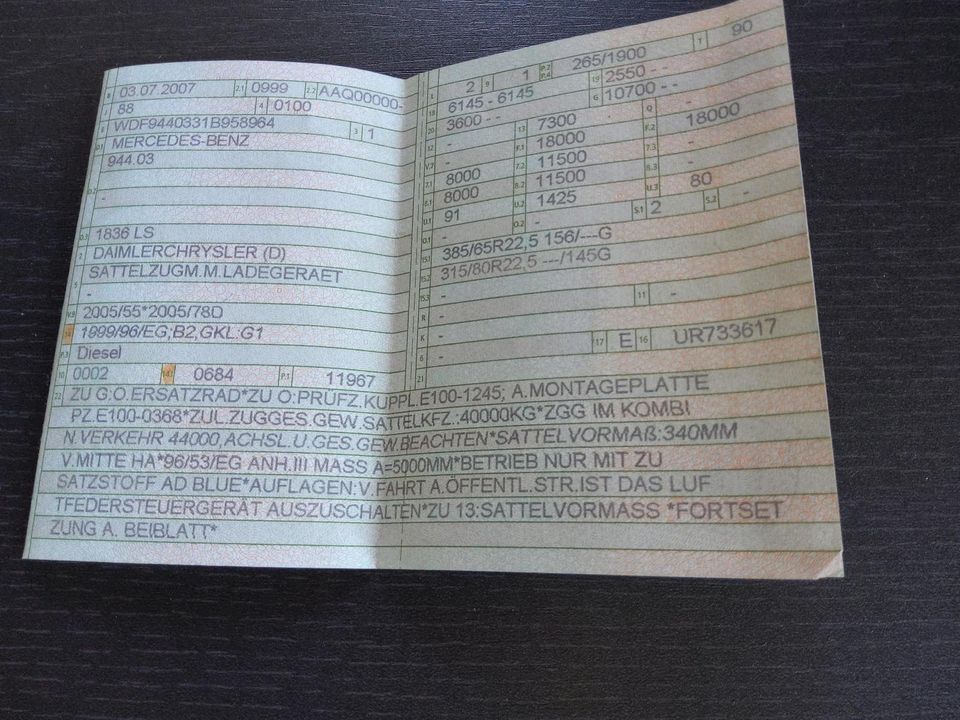 B 03.07.2007 2.1 0999 2.2 AAQ00000-
J 88 4 0100
E WDF9440331B958964 3 1
D.1 MERCEDES-BENZ
944.03
D.2
-
D.3 1836 LS
2 DAIMLERCHRYSLER (D)
5 SATTELZUGM.M.LADEGERAET
-
V.9 2005/55*2005/78D
14 1999/96/EG;B2,GKL:G1
P.3 Diesel
10 0002 14.1 0684 P.1 11967
L 2 9 1 P.2 P.4 265/1900 T 90
18 6145 - 6145 19 2550 - -
20 3600 - - G 10700 - -
12 - 13 7300 Q -
V.7 - F.1 18000 F.2 18000
7.1 8000 7.2 11500 7.3 -
8.1 8000 8.2 11500 8.3 -
U.1 91 U.2 1425 U.3 80
O.1 - O.2 - S.1 2 S.2 -
15.1 385/65R22,5 156/---G
15.2 315/80R22,5 ---/145G
15.3 -
R - 11 -
K -
6 - 17 E 16 UR733617
21 -
22 ZU G:O.ERSATZRAD*ZU O:PRÜFZ.KUPPL.E100-1245; A.MONTAGEPLATTE
PZ.E100-0368*ZUL.ZUGGES.GEW.SATTELKFZ.:40000KG*ZGG IM KOMBI
N.VERKEHR 44000,ACHSL.U.GES.GEW.BEACHTEN*SATTELVORMAß:340MM
V.MITTE HA*96/53/EG ANH.III MASS A=5000MM*BETRIEB NUR MIT ZU
SATZSTOFF AD BLUE*AUFLAGEN:V.FAHRT A.ÖFFENTL.STR.IST DAS LUF
TFEDERSTEUERGERÄT AUSZUSCHALTEN*ZU 13:SATTELVORMASS *FORTSET
ZUNG A. BEIBLATT*